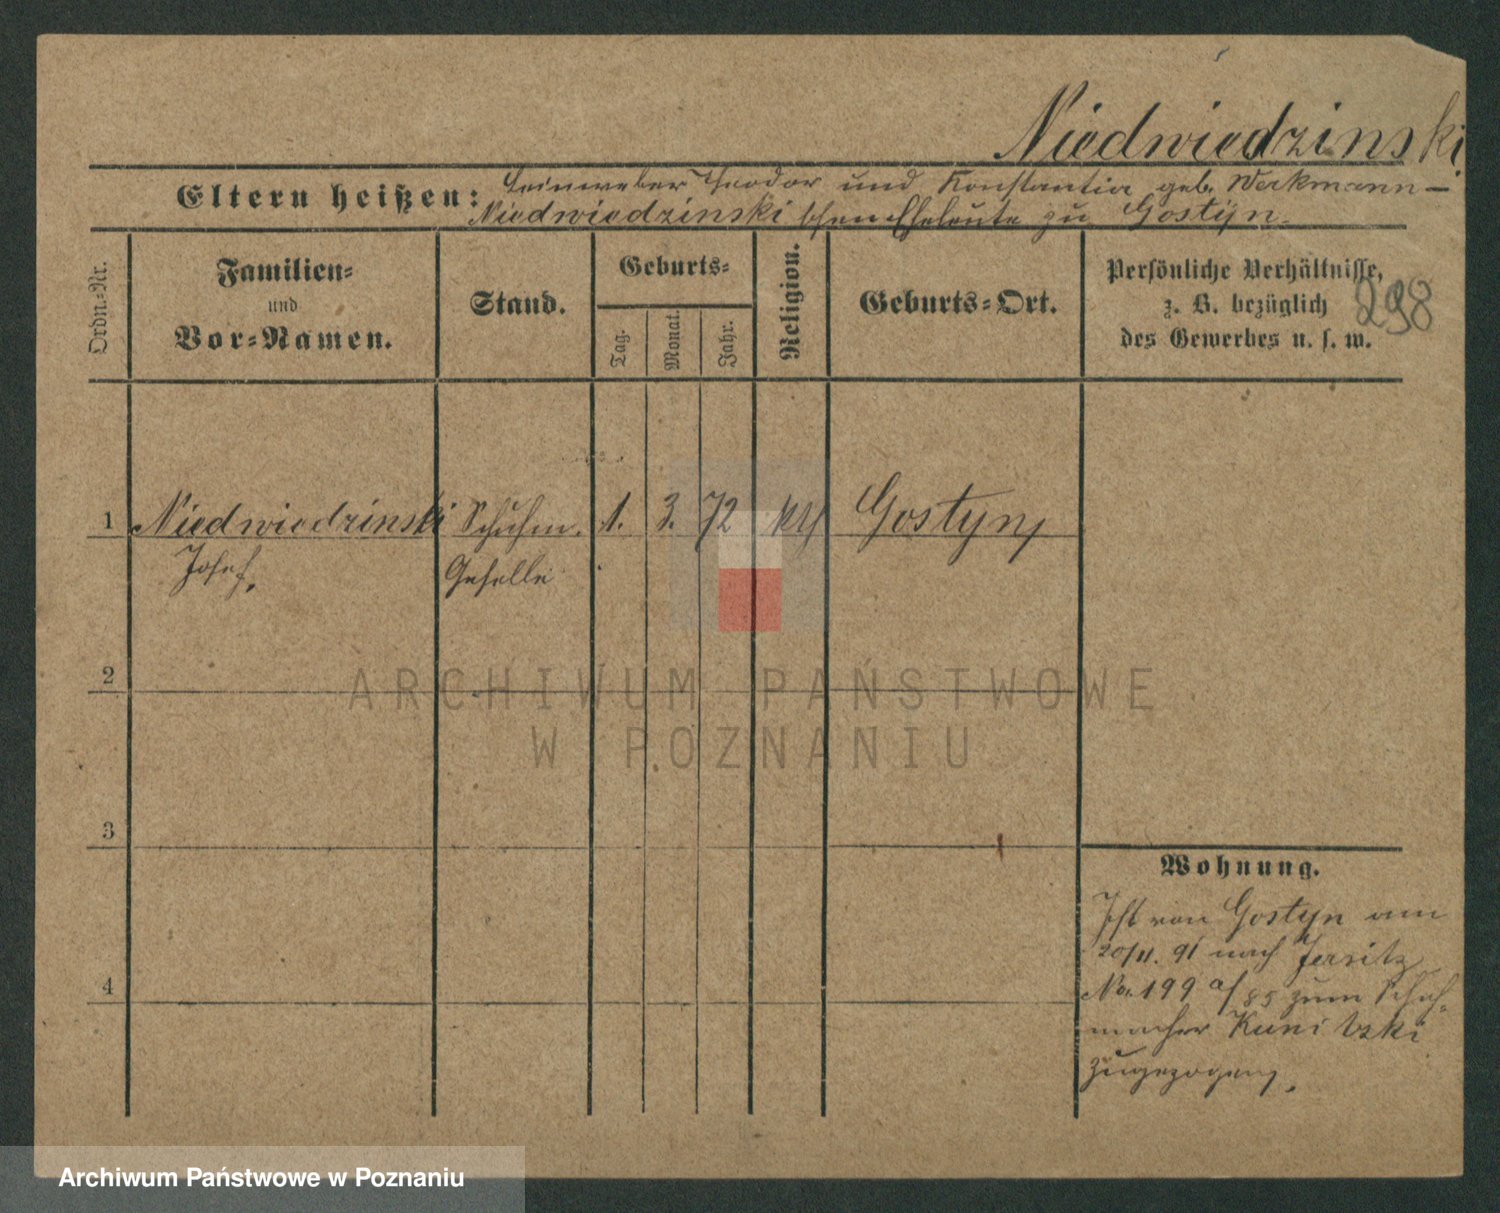 Niedwiedzinski
Eltern heißen: Leinweber Theodor und Konstantia geb. Werkmann-
Niedwiedzinski'schen Eheleute zu Gostyn.
Ordn.-Nr.
Familien-
und
Vor-Namen.
Stand.
Geburts-
Tag.
Monat.
Jahr.
Religion.
Geburts-Ort.
Persönliche Verhältnisse,
z. B. bezüglich
des Gewerbes u. s. w.
298
1 Niedwiedzinski Schuhm. 1. 3. 72 Gostyn
Josef. Geselle
2
3
4
Wohnung.
Ist von Gostyn am
20/11. 91 nach Jersitz
No. 199 a/85 zum Schuh-
macher Kunitzki
zugezogen.
ARCHIWUM PAŃSTWOWE
W POZNANIU
Archiwum Państwowe w Poznaniu